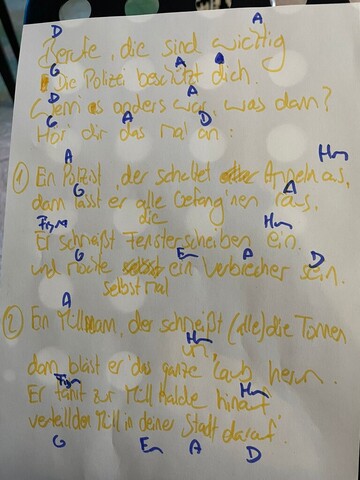 D A
Berufe, die sind wichtig
G A A
Die Polizei beschützt dich.
D A
Wenn es anders wär, was dann?
G A D
Hör dir das mal an:
A Hm
① Ein Polizist, der schaltet Ampeln aus,
G A
dann lässt er alle Gefang'nen raus,
Fism die Hm
Er schmeißt Fensterscheiben ein.
G Em A D
und möchte ein Verbrecher sein.
selbst mal
A
② Ein Müllmann, der schmeißt (alle) die Tonnen
Hm um,
dann bläst er das ganze Laub herum.
Fism Hm
Er fährt zur Müllhalde hinauf
verteilt den Müll in deiner Stadt darauf.
G Em A D